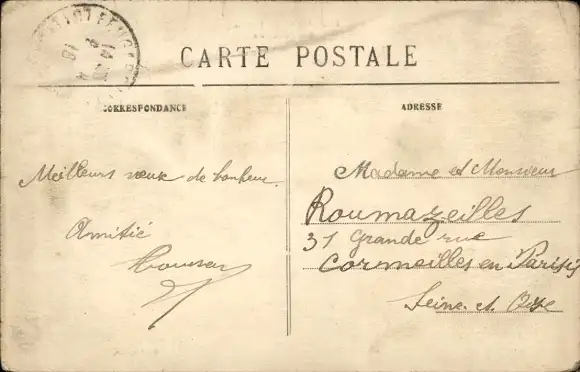 CARTE POSTALE
CORRESPONDANCE
Meilleurs vœux de bonheur.
Amitié
ADRESSE
Madame et Monsieur
Roumazeilles
31 Grande rue
Cormeilles en Parisis
Seine et Oise